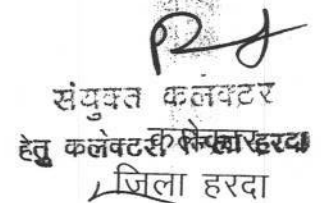 संयुक्त कलेक्टर
हेतु कलेक्टर, हरदा
जिला हरदा